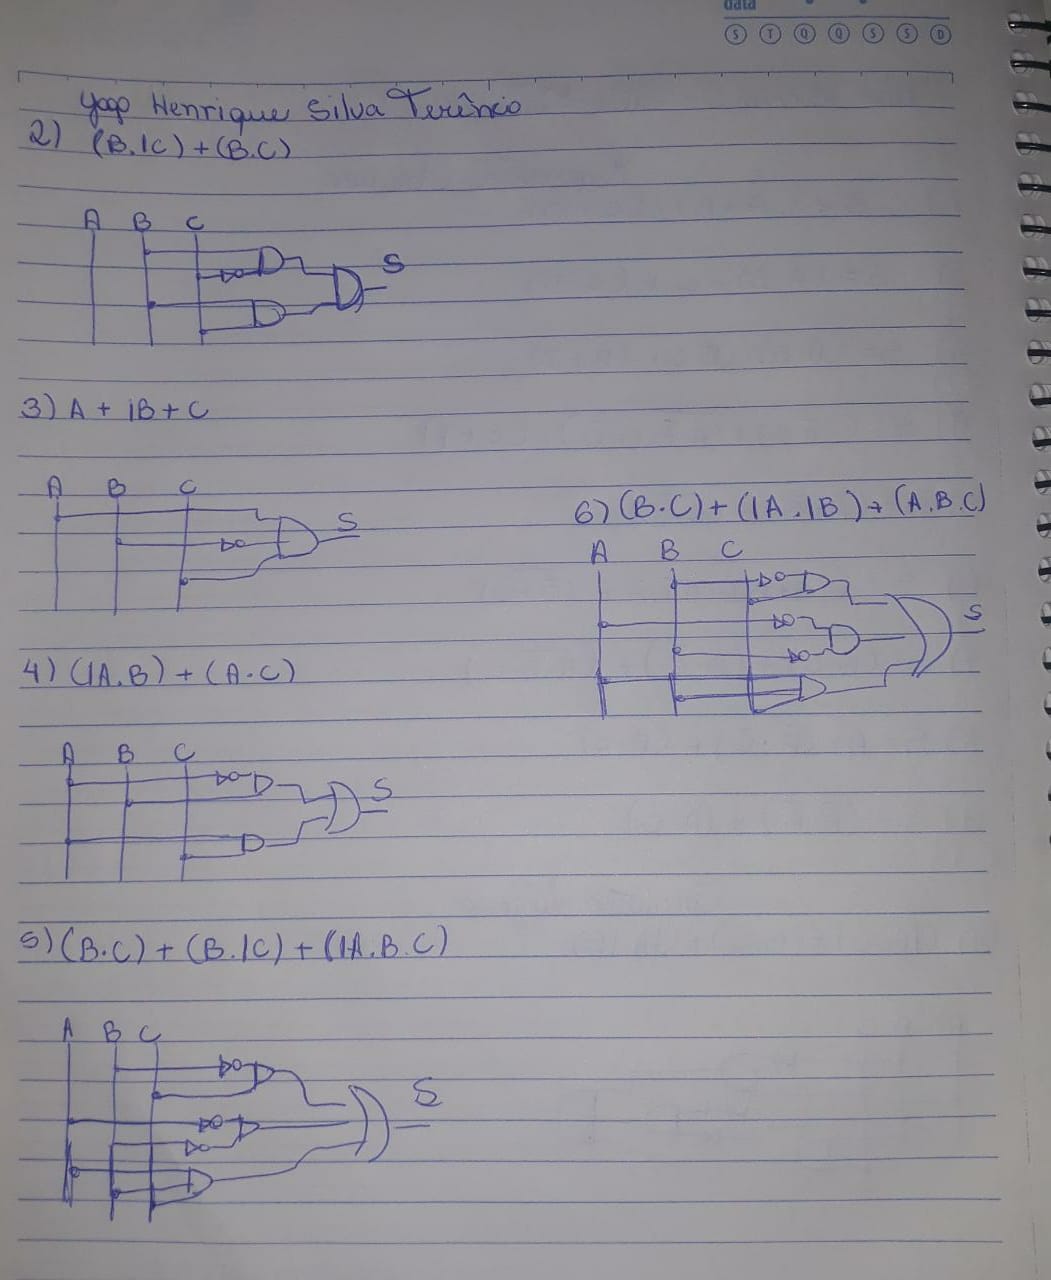 data
S T Q Q S S D
Yago Henrique Silva Terêncio
2) (B.1C)+(B.C)
A B C
S
3) A + 1B + C
A B C
S
4) (1A.B) + (A.C)
A B C
S
5) (B.C) + (B.1C) + (1A.B.C)
A B C
S
6) (B.C)+(1A.1B)+(A.B.C)
A B C
S